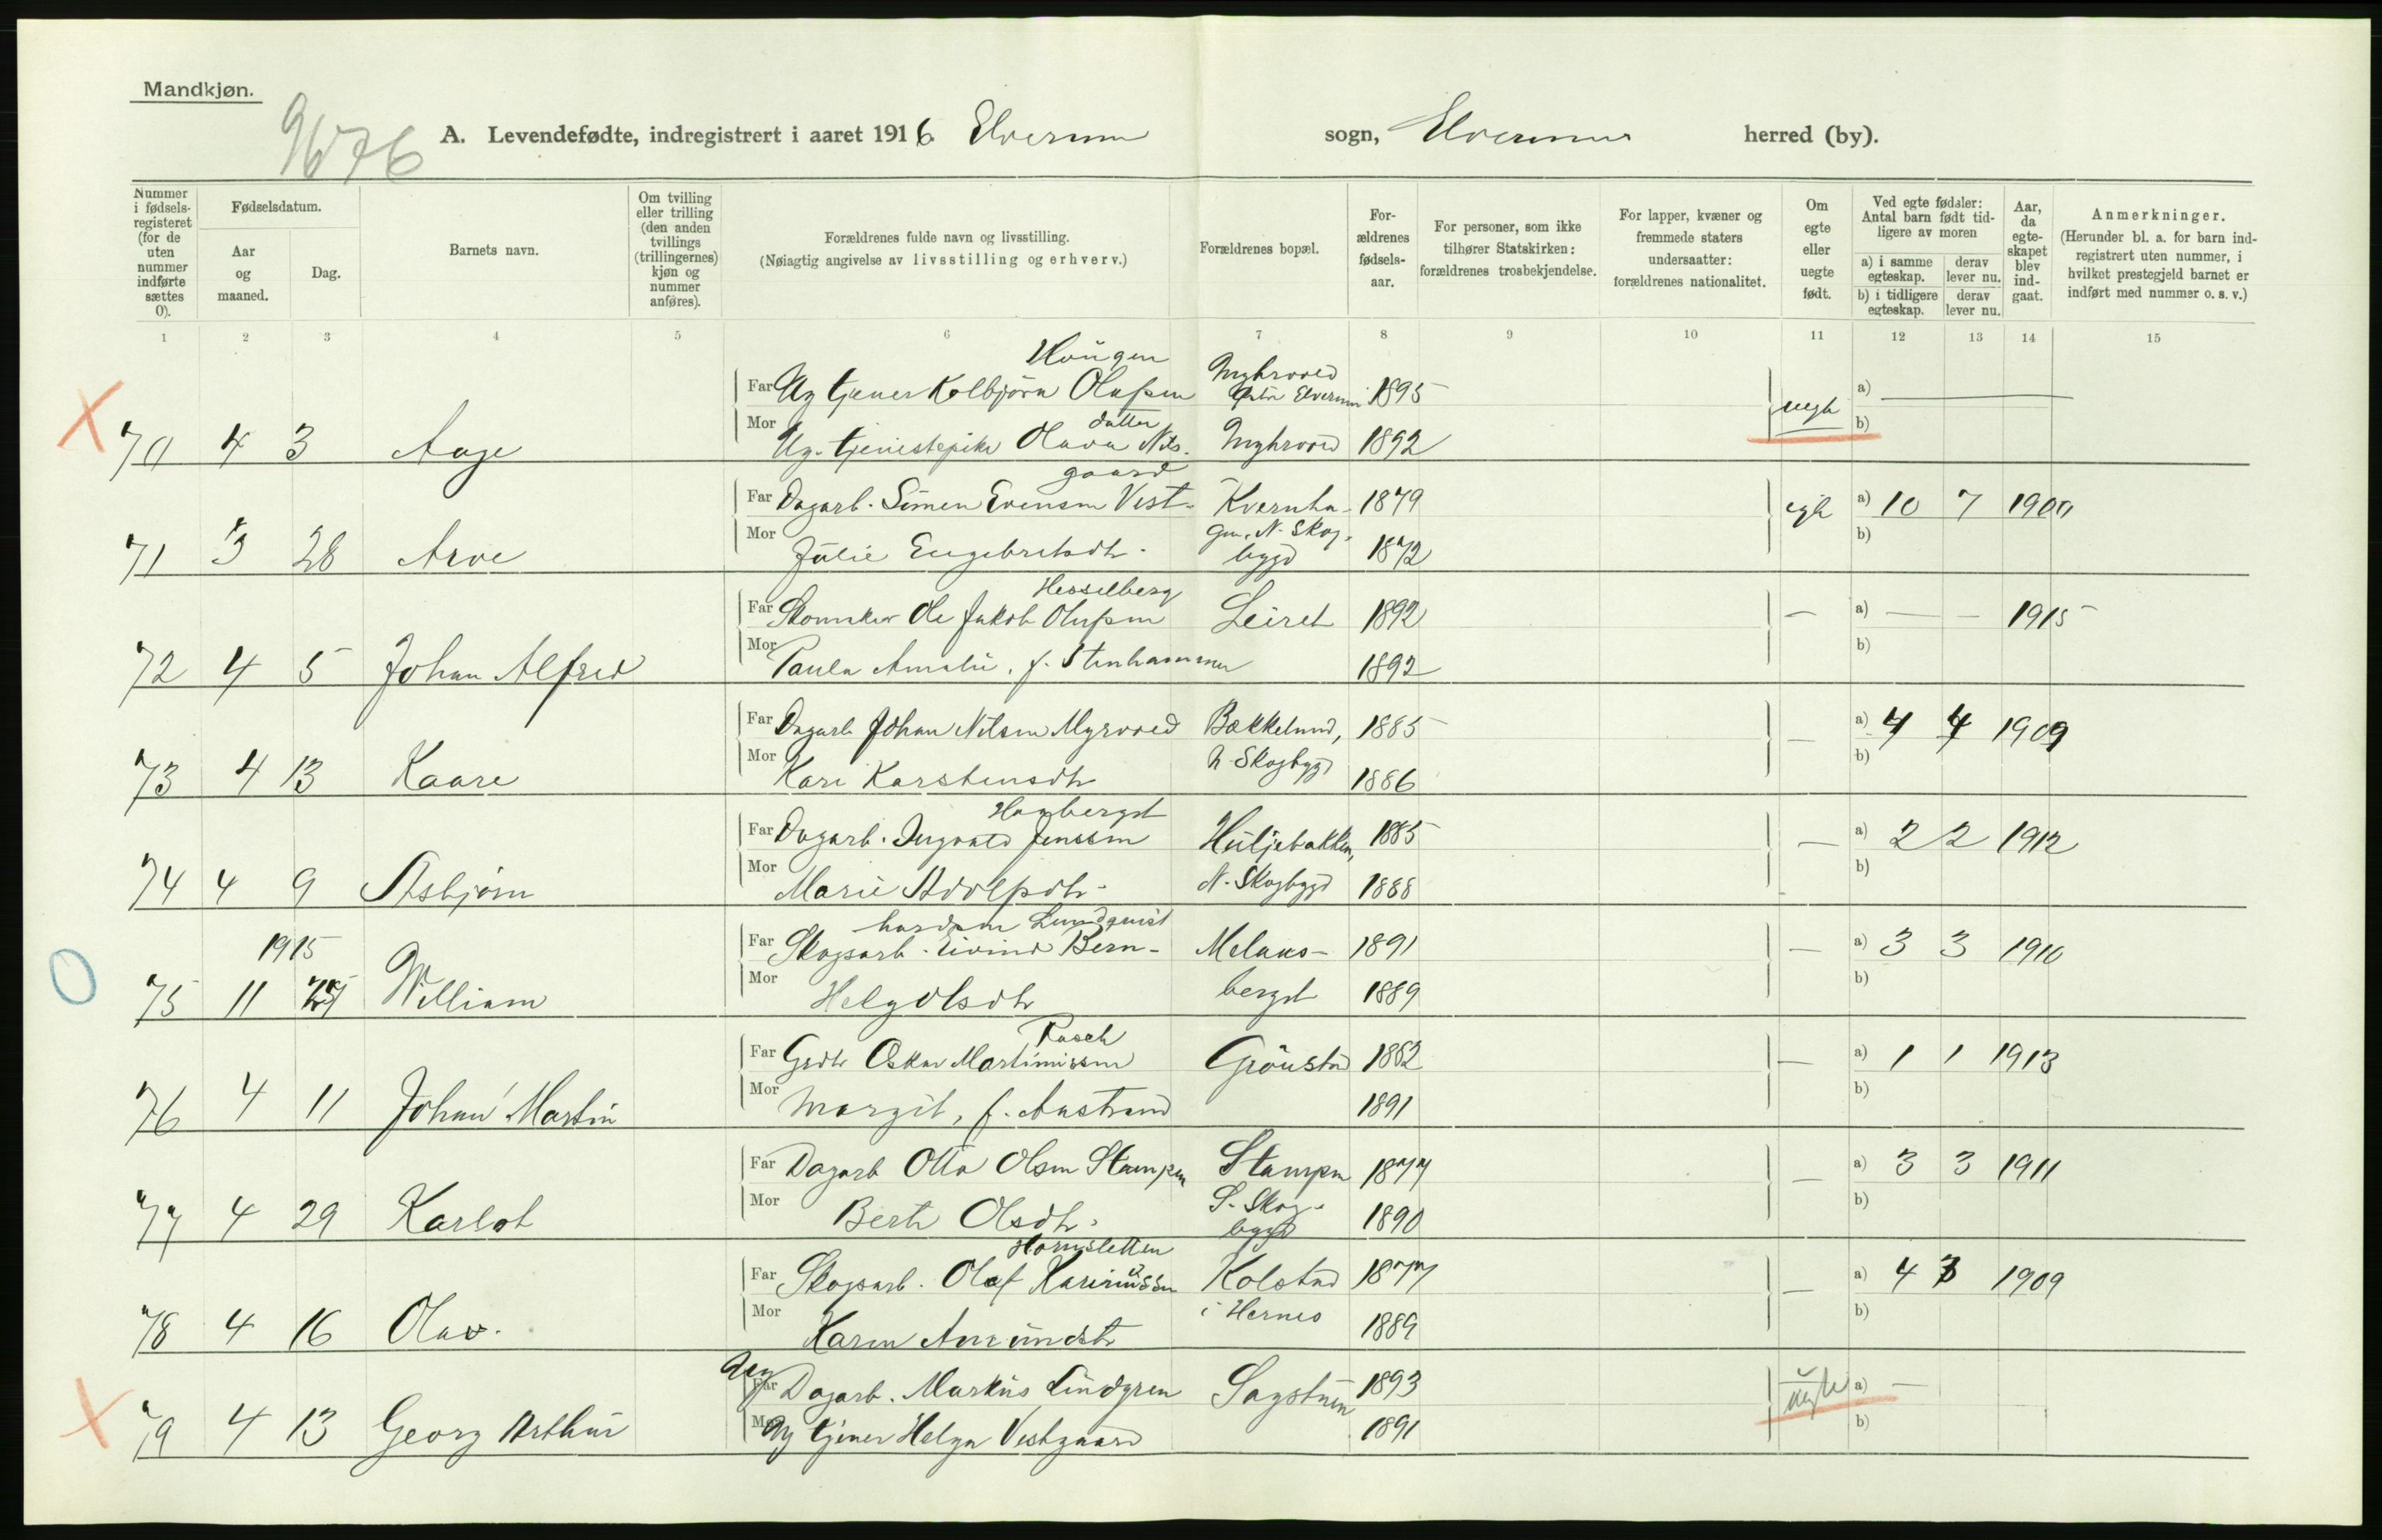 Mandkjøn.
9676
A. Levendefødte, indregistrert i aaret 1916 Elverum sogn, Elverum herred (by).
Nummer i fødsels-registeret (for de uten nummer indførte sættes 0).
Fødselsdatum.
Aar og maaned.
Dag.
Barnets navn.
Om tvilling eller trilling (den anden tvillings (trillingernes) kjøn og nummer anføres).
Forældrenes fulde navn og livsstilling.
(Nøiagtig angivelse av livsstilling og erhverv.)
Forældrenes bopæl.
For-ældrenes fødsels-aar.
For personer, som ikke tilhører Statskirken: forældrenes trosbekjendelse.
For lapper, kvæner og fremmede staters undersaatter: forældrenes nationalitet.
Om egte eller uegte født.
Ved egte fødsler: Antal barn født tid-ligere av moren
a) i samme egteskap.
derav lever nu.
b) i tidligere egteskap.
derav lever nu.
Aar, da egte-skapet blev ind-gaat.
Anmerkninger.
(Herunder bl. a. for barn ind-registrert uten nummer, i hvilket prestegjeld barnet er indført med nummer o. s. v.)
1 2 3 4 5 6 7 8 9 10 11 12 13 14 15
Haugen Myhrvold
Far Ug tjener Kolbjörn Olafsen Elverum 1895 uegte a)
datter
70 4 3 Aage Mor Ug. tjenestepike Olava Nils- Myhrvold 1892 b)
gaard
Far Dagarb. Simen Evensen Vest- Kvernha- 1879 egte a) 10 7 1900
71 3 28 Arve Mor Julie Engebretsdtr. gen, N. Skog-bygd 1872 b)
Hesselberg
Far Skomaker Ole Jakob Olafsen Leiret 1892 — a) — — 1915
72 4 5 Johan Alfred Mor Paula Amalie, f. Stenhammer 1892 b)
Far Dagarb Johan Nilsen Myrvold Bækkelund, 1885 — a) 4 4 1909
73 4 13 Kaare Mor Kari Karstensdtr N. Skogbygd 1886 b)
Haybergst
Far Dagarb. Ingvald Jenssen Huljebakken, 1885 — a) 2 2 1912
74 4 9 Asbjörn Mor Marie Adolfsdtr. N. Skogbygd 1888 b)
1915 hardsen Lundqvist
Far Skogsarb. Eivind Bern- Melaas- 1891 — a) 3 3 1910
75 11 William Mor Helg Olsdtr bergst 1889 b)
Rasch
Far Grdbr Oskar Martiniussen Grönstad 1882 — a) 1 1 1913
76 4 11 Johan Martin Mor Margit, f. Aastrand 1891 b)
Far Dagarb Otto Olsen Stampen Stampen 1877 — a) 3 3 1911
77 4 29 Karlot Mor Berte Olsdtr. S. Skog-bygd 1890 b)
Hornsletten
Far Skogsarb. Olaf Kariniussen Kolstad 1877 — a) 4 3 1909
78 4 16 Olav. Mor Karen Amundsdtr i Hernes 1889 b)
Ug
Far Dagarb. Markus Lindgren Sagstuen 1893 uegte a) —
79 4 13 Georg Arthur Mor Ug tjener Helga Vestgaard 1891 b)